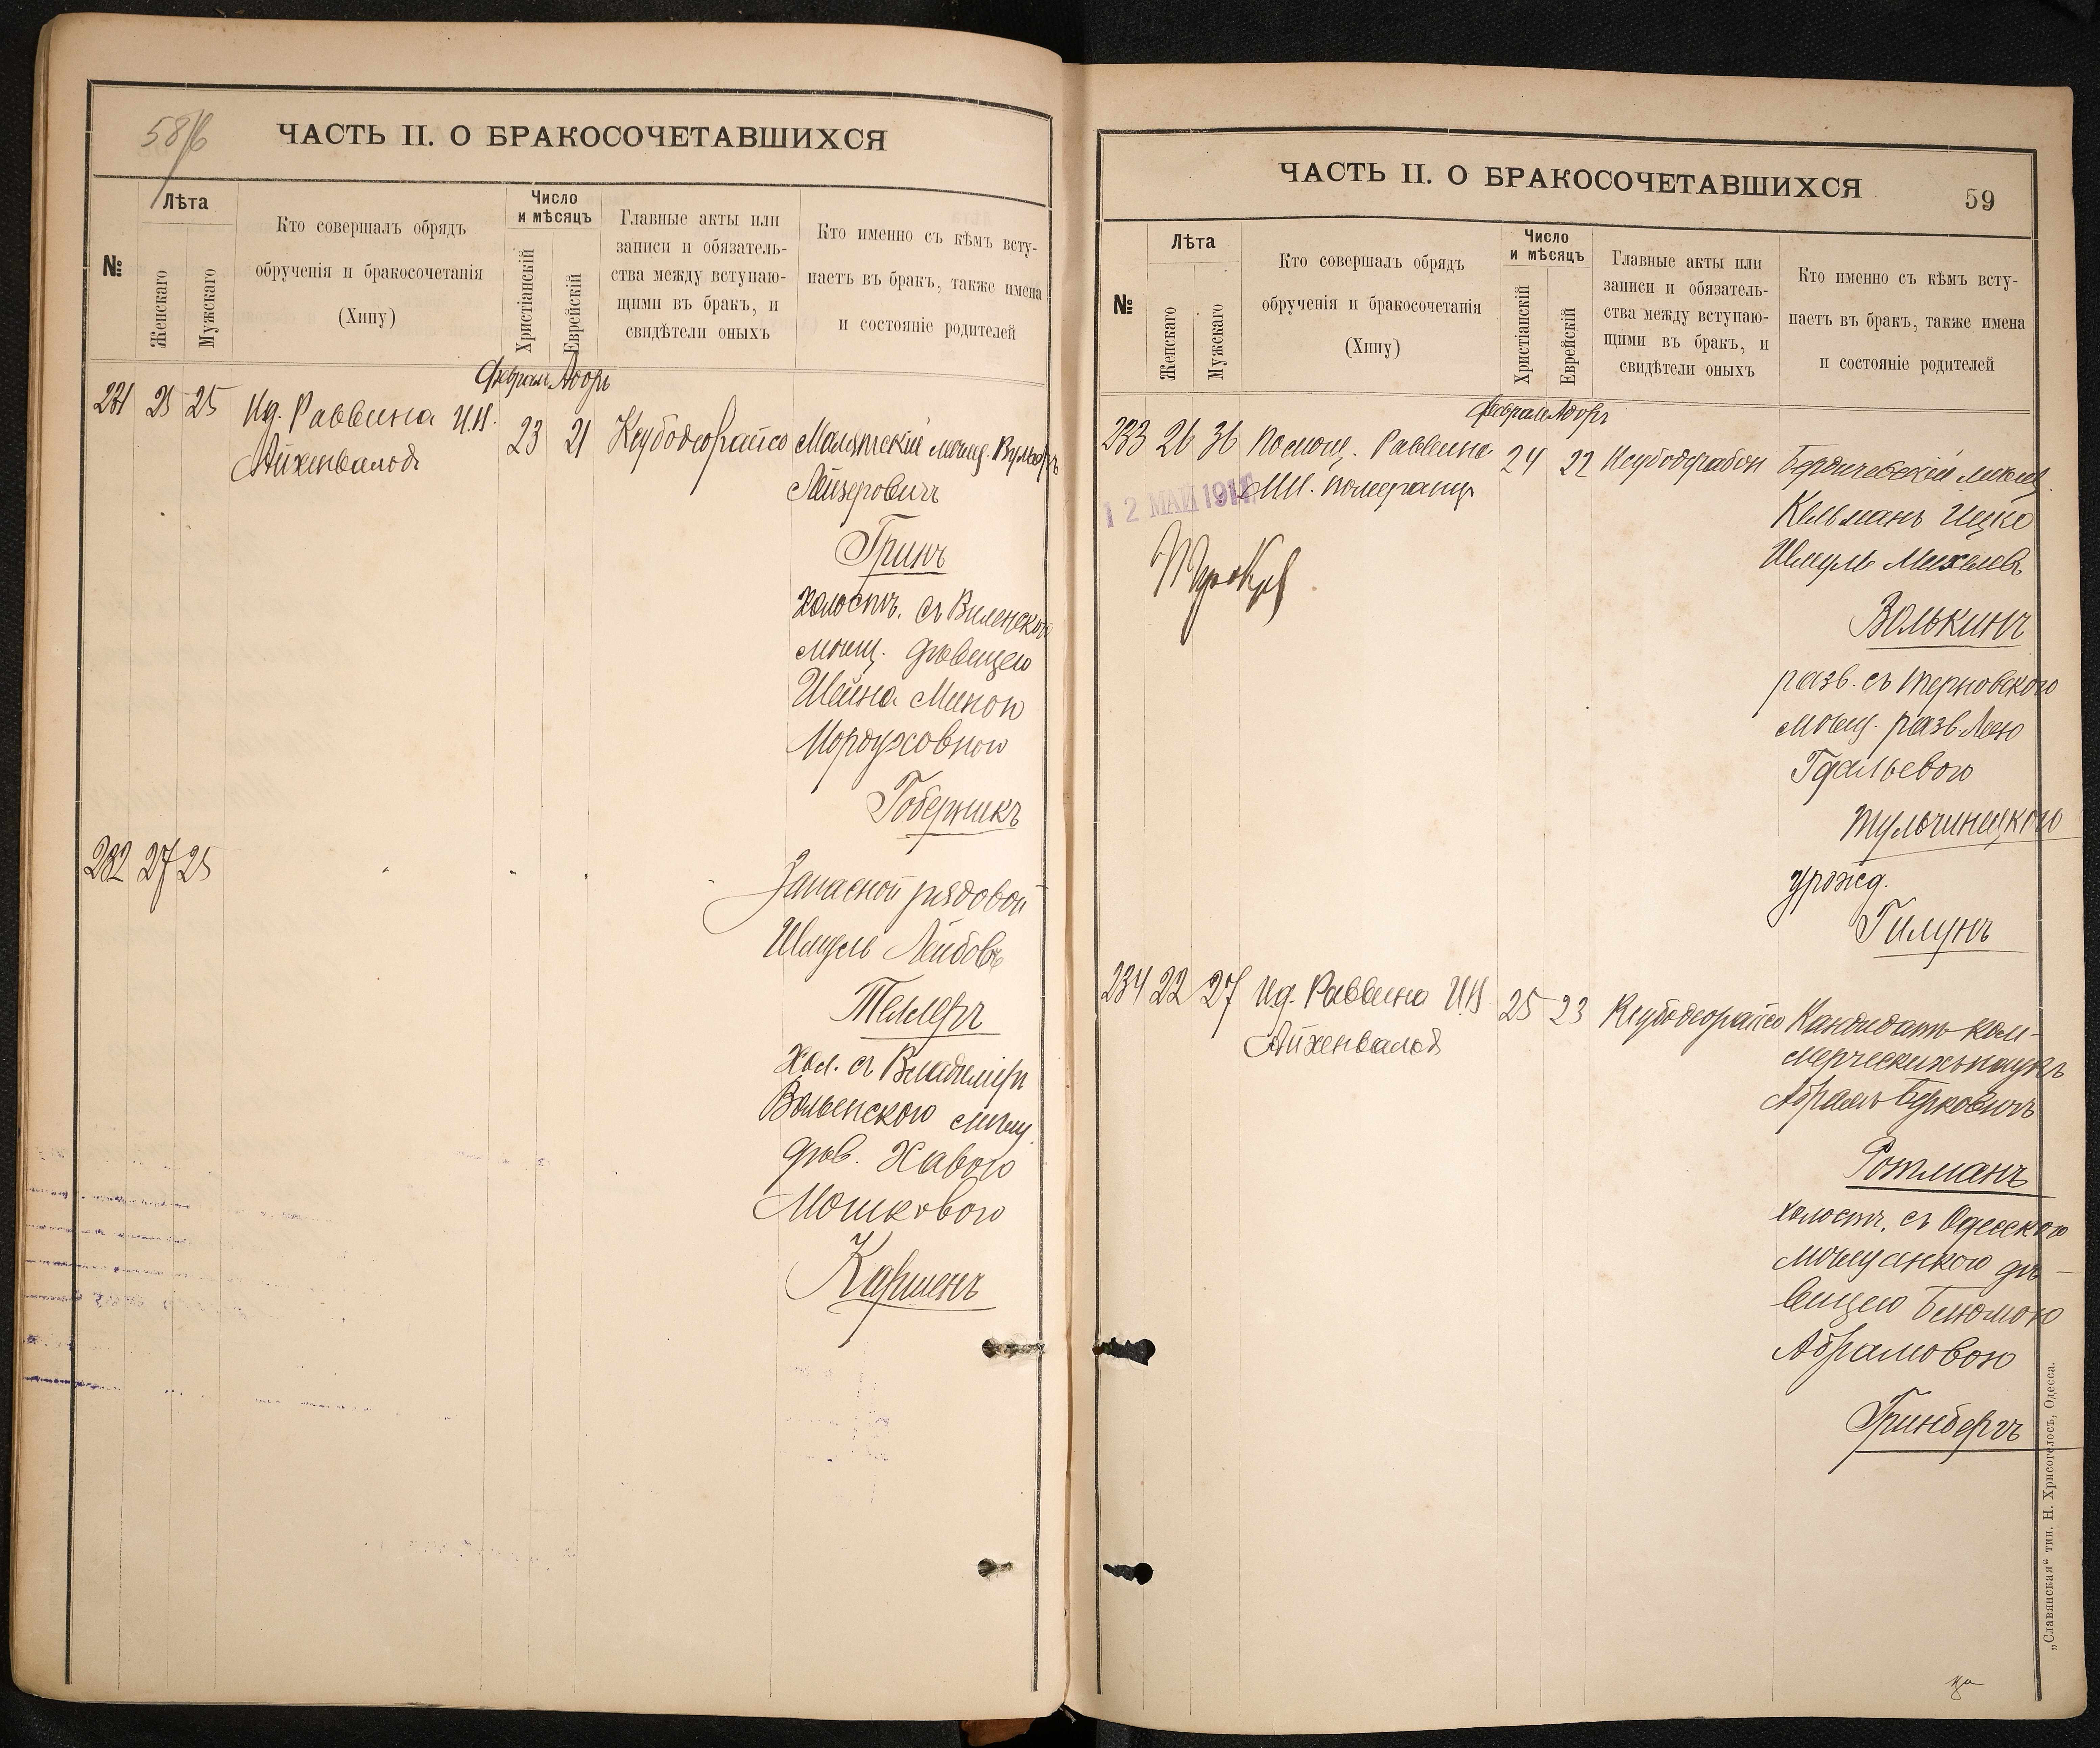 58/6
ЧАСТЬ II. О БРАКОСОЧЕТАВШИХСЯ
№
Лѣта
Женскаго
Мужскаго
Кто совершалъ обрядъ
обрученія и бракосочетанія
(Хипу)
Число
и мѣсяцъ
Христіанскій
Еврейскій
Главные акты или
записи и обязатель-
ства между вступаю-
щими въ бракъ, и
свидѣтели оныхъ
Кто именно съ кѣмъ всту-
паетъ въ бракъ, также имена
и состояніе родителей
Февраль Адоръ
231 25 25 Ид. Раввина И.Н. 23 21 Малятскій мѣщ. Вульфъ
Айхенвальдъ
Лейзеровичъ
Гринъ
холостъ. съ Виленскою
мѣщ. дѣвицею
Шейна Миною
Мордуховною
Гоберникъ
232 27 25
Запасной рядовой
Шмуль Лейбовъ
Теллеръ
хол. съ Владиміръ
Волынскою мѣщ.
дѣв. Хавою
Мошковою
Каршенъ
ЧАСТЬ II. О БРАКОСОЧЕТАВШИХСЯ
59
№
Лѣта
Женскаго
Мужскаго
Кто совершалъ обрядъ
обрученія и бракосочетанія
(Хипу)
Число
и мѣсяцъ
Христіанскій
Еврейскій
Главные акты или
записи и обязатель-
ства между вступаю-
щими въ бракъ, и
свидѣтели оныхъ
Кто именно съ кѣмъ всту-
паетъ въ бракъ, также имена
и состояніе родителей
Февраль Адоръ
233 26 36 Помощ. Раввина 24 22 Бердичевскій мѣщ.
Померанцъ
12 МАЙ
Кельманъ Ицко
Шмуль Михелевъ
Волькинъ
разв. съ Терновскою
мѣщ. разв. Леею
Гдальевою
Тульчинецкою
урожд.
Гилунъ
234 22 27 Ид. Раввина И.Н. 25 23 Кандидатъ ком-
Айхенвальдъ
мерческихъ наукъ
Абрамъ Берковичъ
Ротманъ
холостъ. съ Одесскою
мѣщанкою дѣ-
вицею Блюмою
Абрамовою
Гринбергъ
„Славянская“ тип. Н. Хрисогелосъ, Одесса.